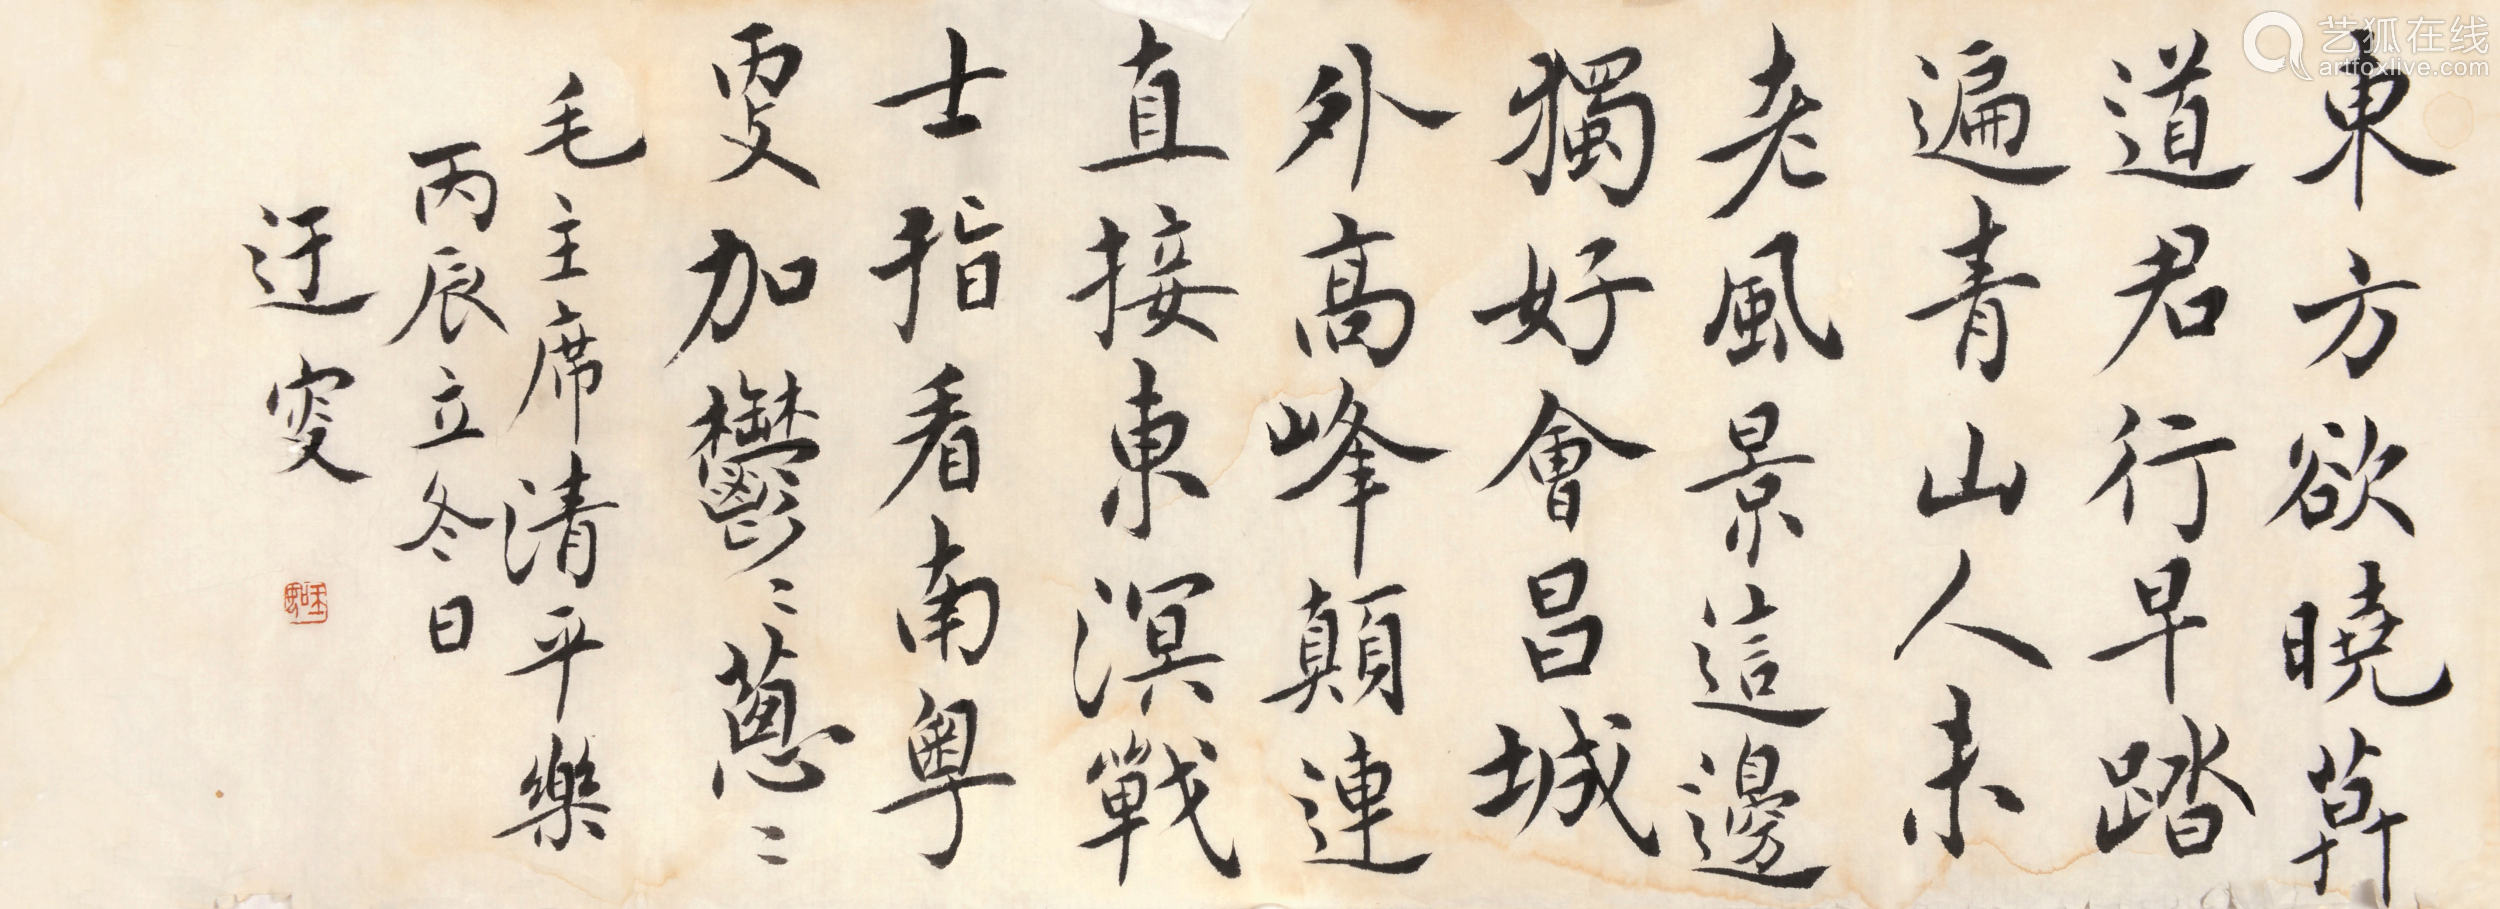 東方欲曉莫
道君行早踏
遍青山人未
老風景這邊
獨好會昌城
外高峰顛連
直接東溟戰
士指看南粤
更加鬱〻蔥〻
毛主席清平樂
丙辰立冬日
迂叟
艺狐在线
artfoxlive.com